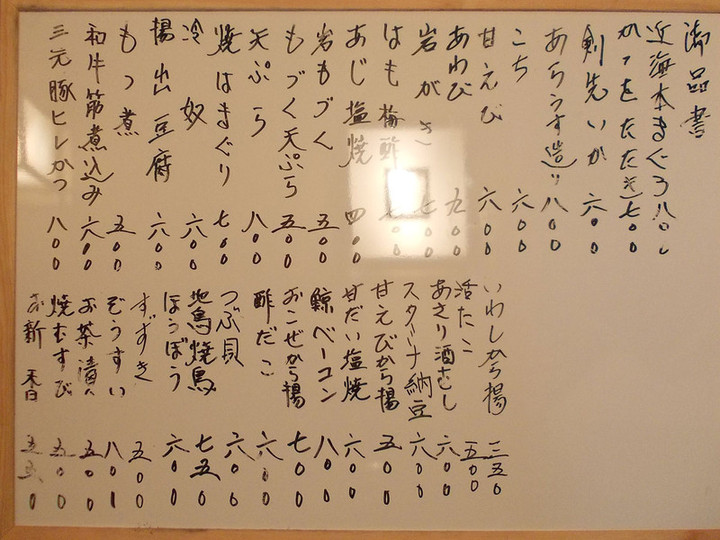 御品書
近海本まぐろ 八〇〇
かつをたたき 七〇〇
剣先いか 六〇〇
あらうす造り 八〇〇
こち 六〇〇
甘えび 六〇〇
あわび 九〇〇
岩がき 七〇〇
はも梅酢
あじ塩焼 四〇〇
岩もづく 五〇〇
もづく天ぷら 五〇〇
天ぷら 八〇〇
焼はまぐり 七〇〇
冷奴 六〇〇
揚出豆腐 六〇〇
もつ煮 五〇〇
和牛筋煮込み 六〇〇
三元豚ヒレかつ 八〇〇
いわしから揚 三五〇
活たこ 五〇〇
あさり酒むし 六〇〇
スタミナ納豆 六〇〇
甘えびから揚 五〇〇
甘だい塩焼 六〇〇
鯨ベーコン 八〇〇
おこぜから揚 七〇〇
酢だこ 六〇〇
つぶ貝 六〇〇
地鳥焼鳥 七五〇
ほうぼう 六〇〇
すずき 五〇〇
ぞうすい 八〇〇
お茶漬 五〇〇
焼むすび 五〇〇
お新香 五五〇